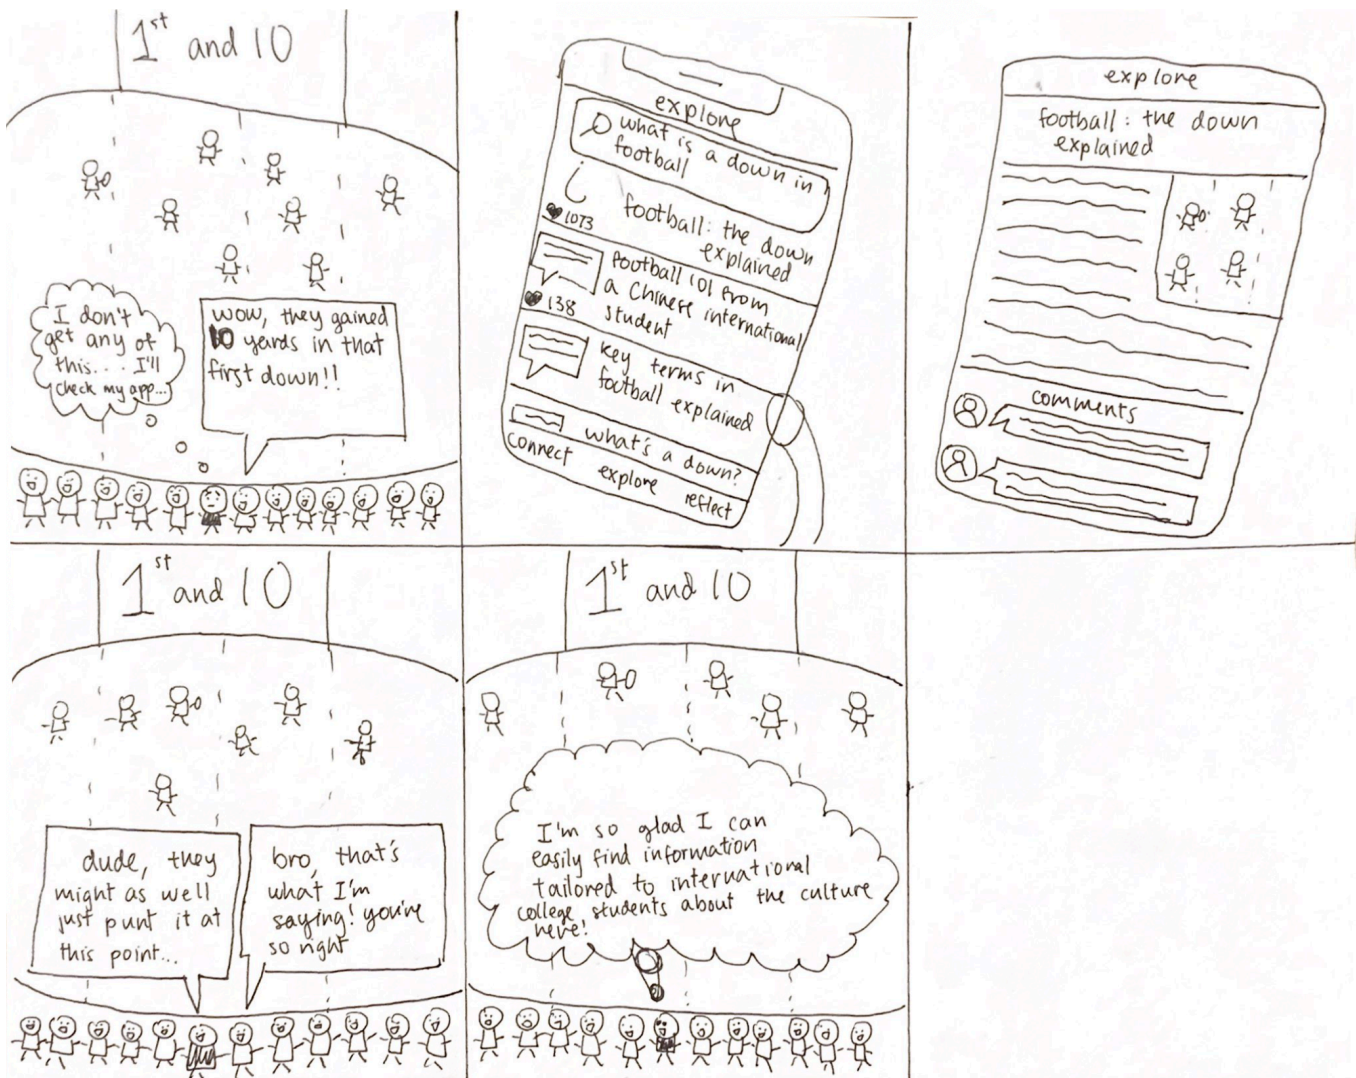 1st and 10
I don't
get any of
this... I'll
check my app...
wow, they gained
10 yards in that
first down!!
explore
what is a down in
football
football: the down
explained
1073
football 101 from
a Chinese international
student
138
key terms in
football explained
what's a down?
connect explore reflect
explore
football: the down
explained
comments
1st and 10
dude, they
might as well
just punt it at
this point...
bro, that's
what I'm
saying! you're
so right
1st and 10
I'm so glad I can
easily find information
tailored to international
college students about the culture
here!